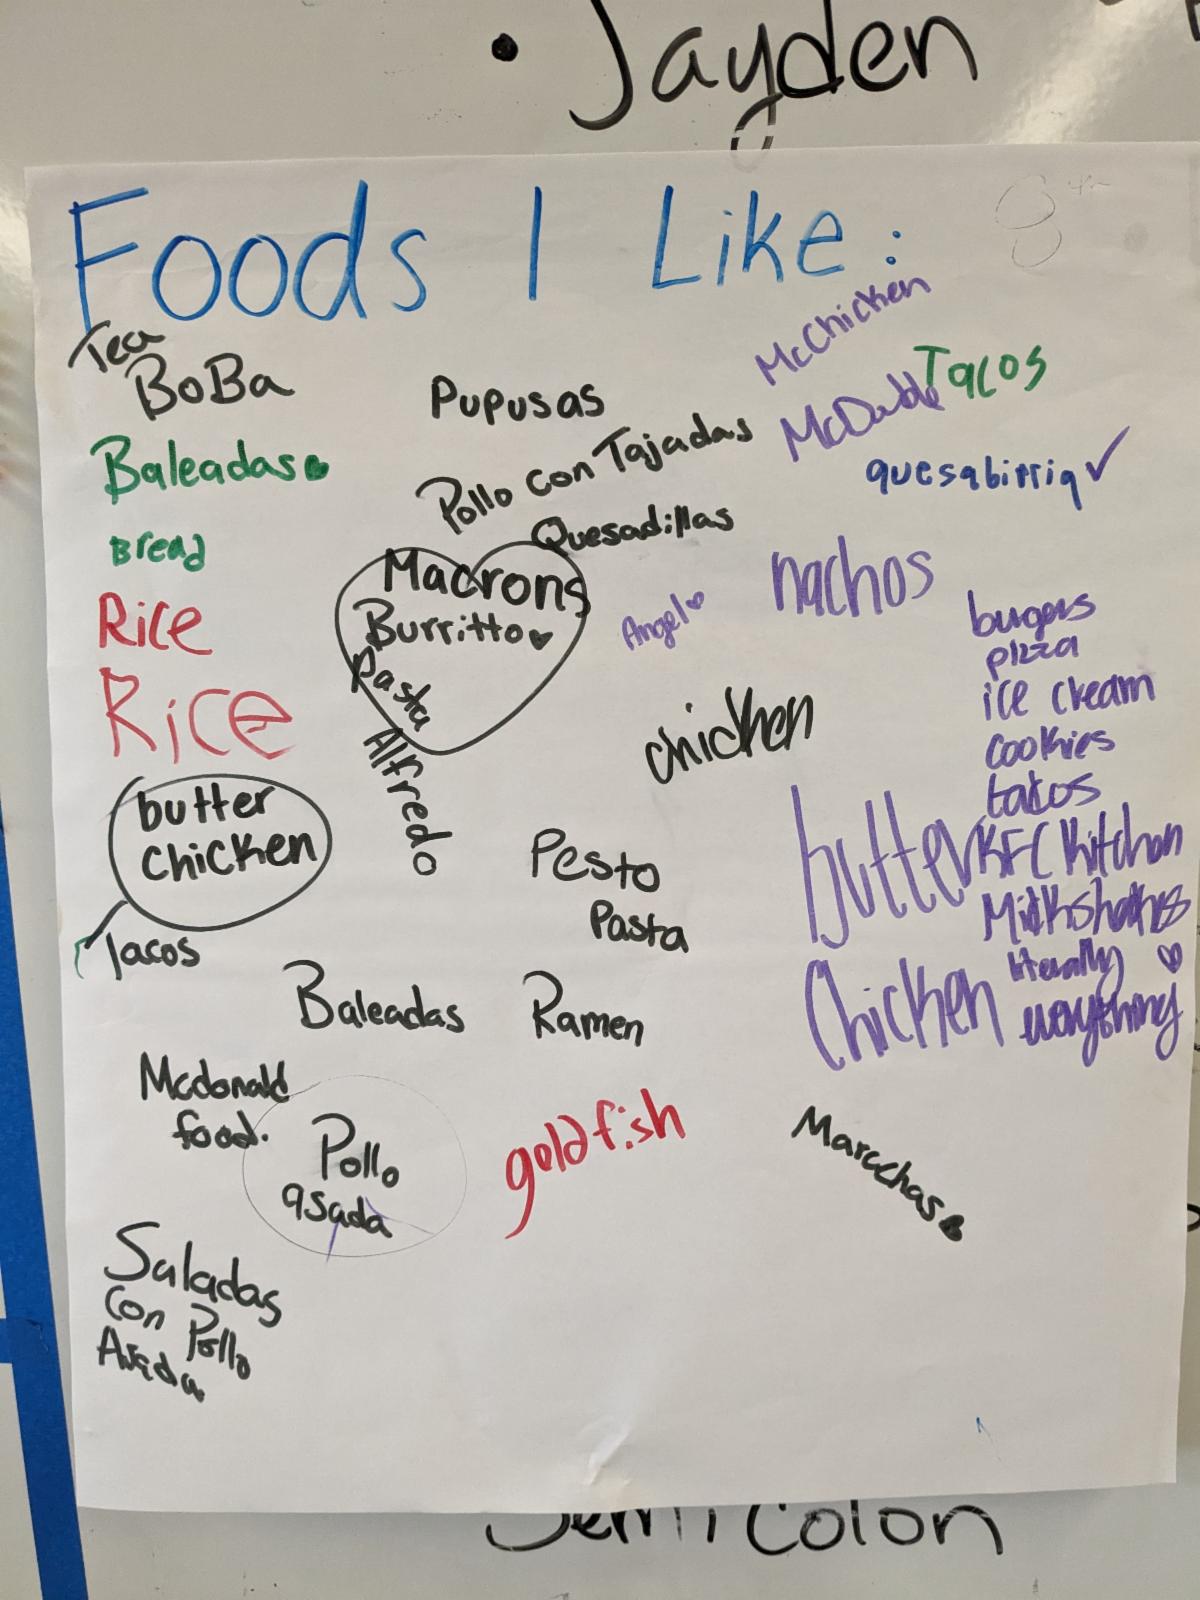 • Jayden
Foods I Like:
Tea
BoBa
Baleadas
Bread
Rice
Rice
butter
chicken
Tacos
Pupusas
Pollo con Tajadas
Quesadillas
Macrons
Burritto
Pasta
Alfredo
Angel
McChicken
McDouble
Tacos
quesabirria✓
nachos
chicken
burgers
pizza
ice cream
cookies
tacos
KFC Kitchan
Milkshakes
literally
everything
butter
Chicken
Pesto
Pasta
Baleadas
Ramen
Mcdonald
food.
Pollo
asada
goldfish
Maruchas
Saladas
Con Pollo
Asada
Semicolon